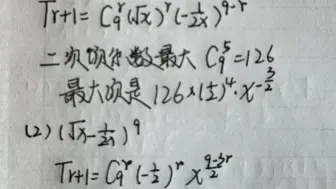 Tr+1 = C₉ʳ (√x)ʳ (-1/2x)⁹⁻ʳ
二次项系数最大 C₉⁵ = 126
最大项是 126×(1/2)⁴·x^(-3/2)
(2) (√x - 1/2x)⁹
Tr+1 = C₉ʳ (-1/2)ʳ x^((9-3r)/2)